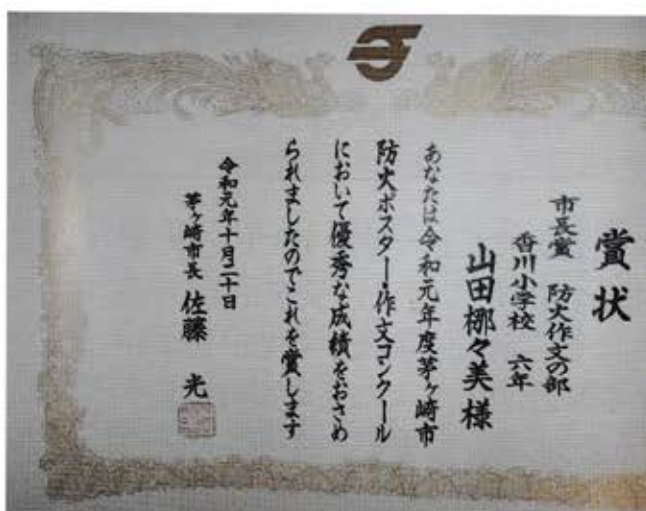 賞状
市長賞 防火作文の部
香川小学校 六年
山田梛々美様
あなたは令和元年度茅ヶ崎市
防火ポスター・作文コンクール
において優秀な成績をおさめ
られましたのでこれを賞します
令和元年十月二十日
茅ヶ崎市長 佐藤 光